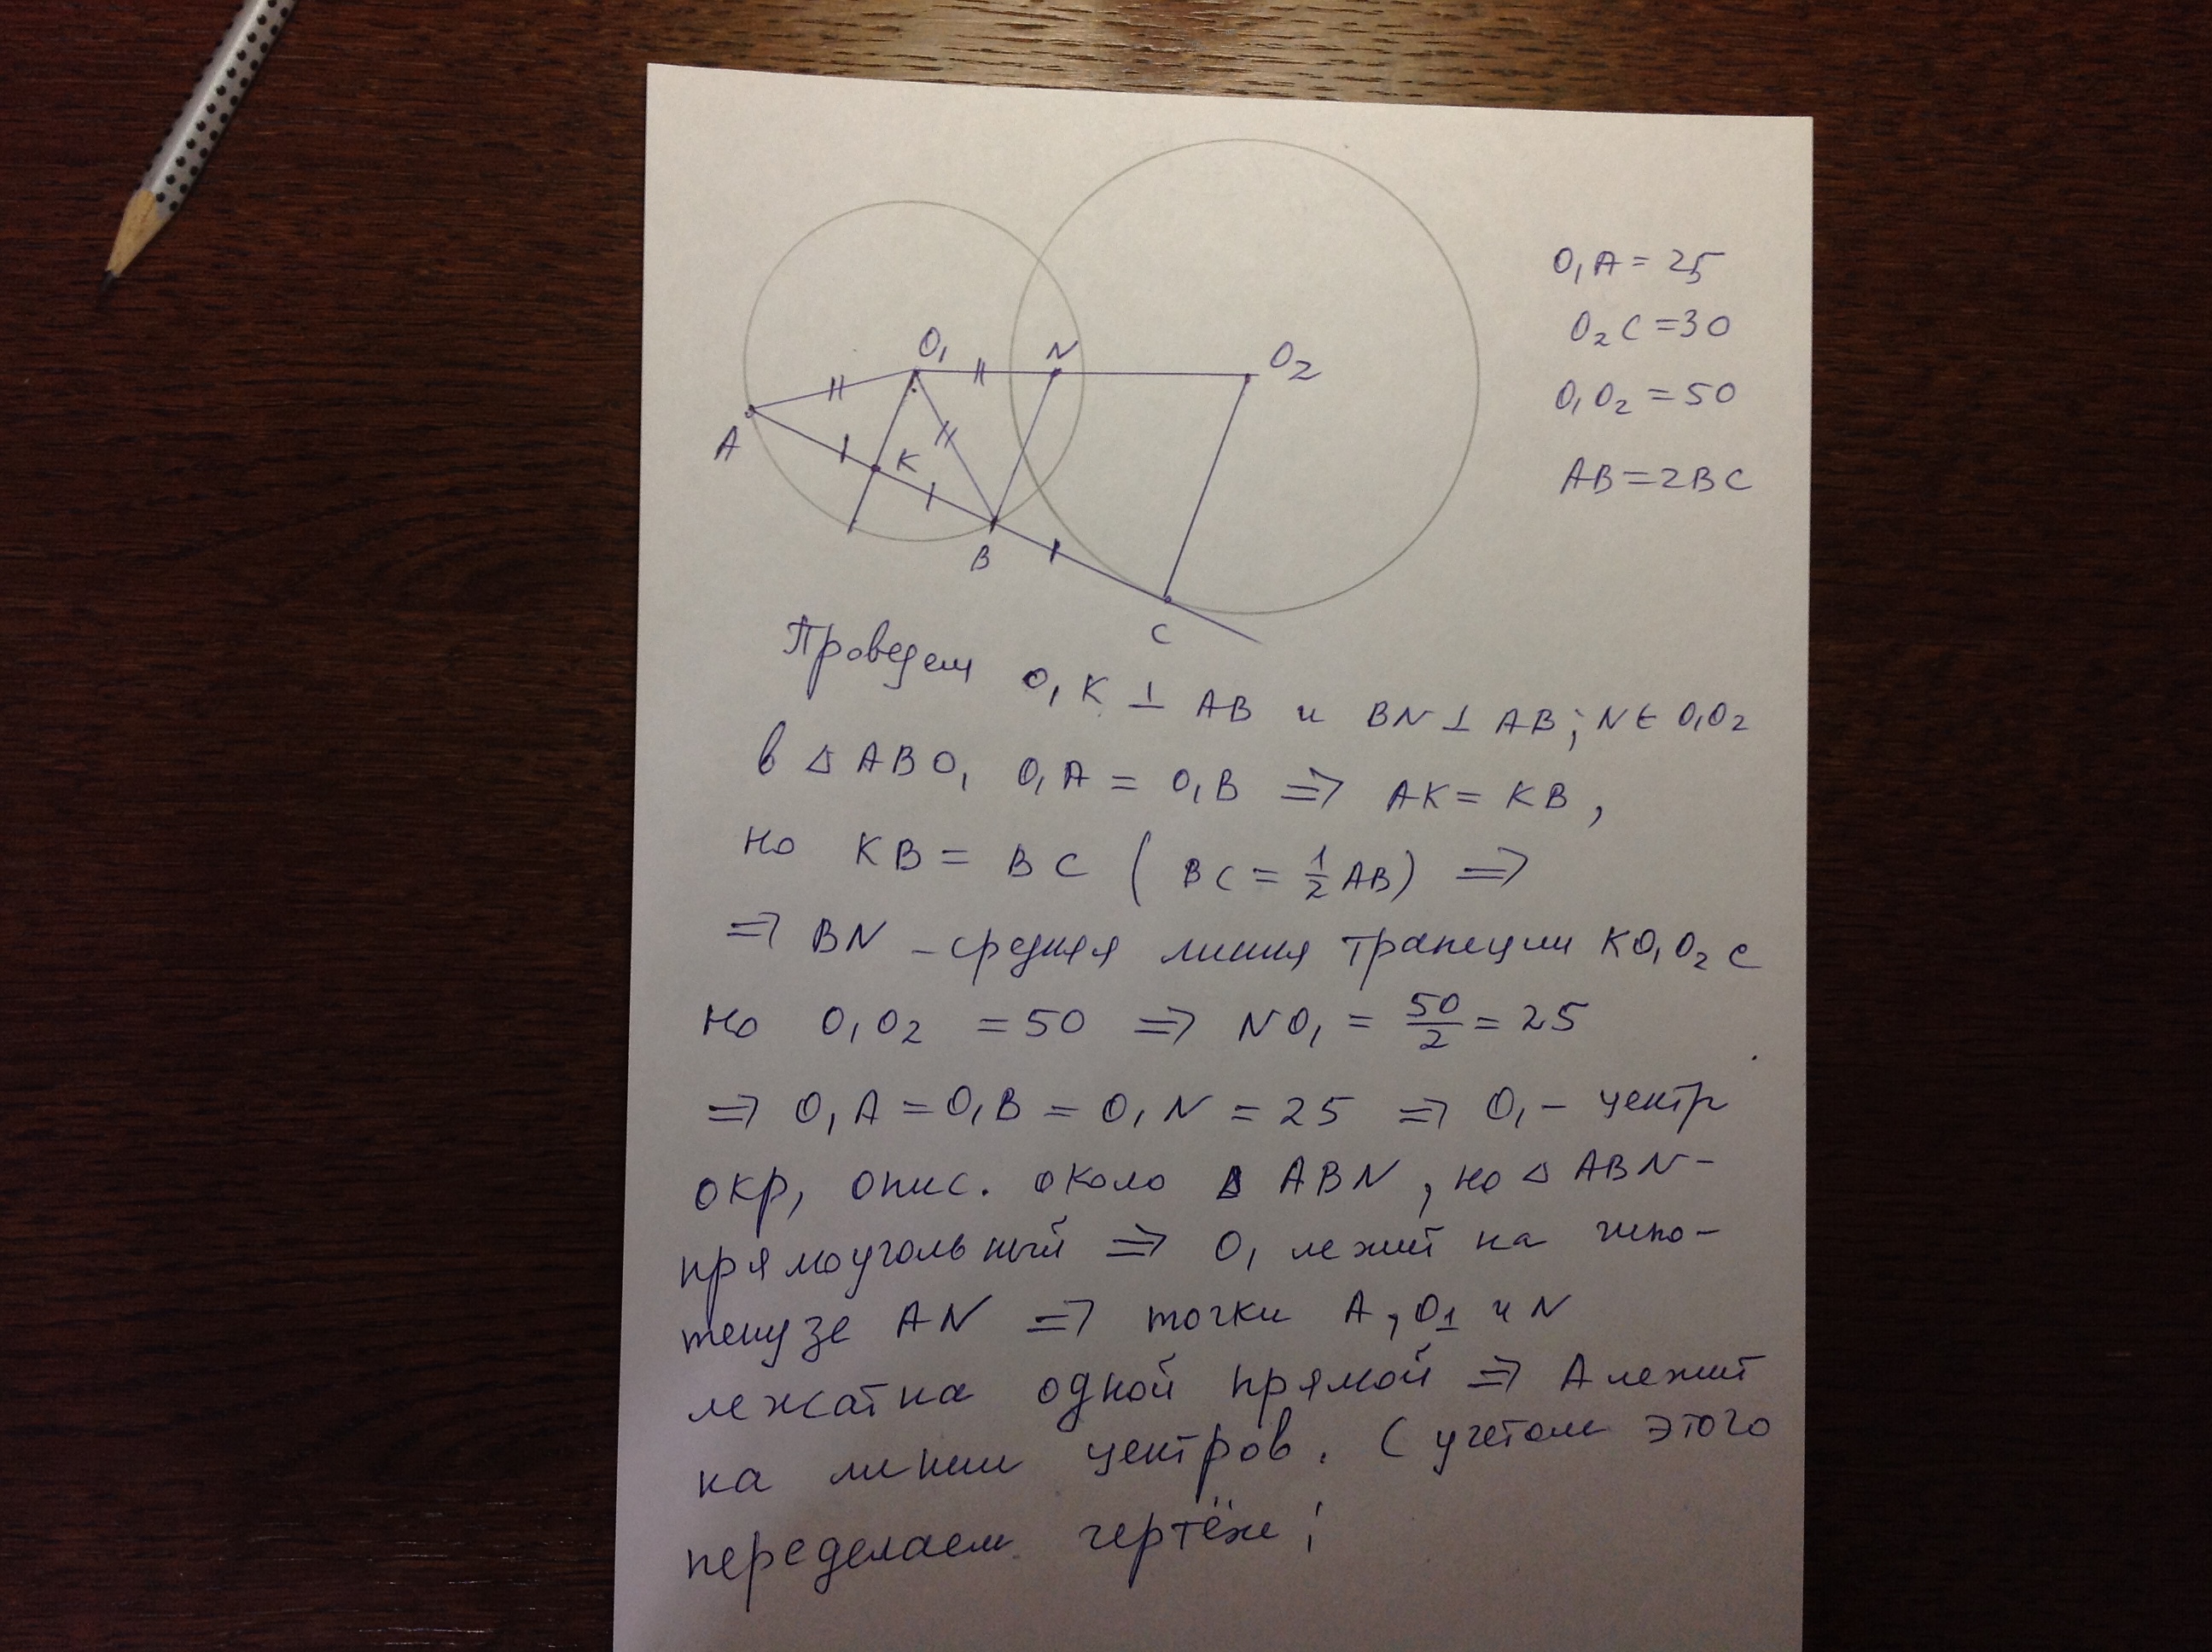 O₁
N
O₂
A
K
B
C
O₁A = 25
O₂C = 30
O₁O₂ = 50
AB = 2BC
Проведем O₁K ⊥ AB и BN ⊥ AB; N ∈ O₁O₂
в △ABO₁ O₁A = O₁B ⇒ AK = KB,
но KB = BC (BC = 1/2 AB) ⇒
⇒ BN - средняя линия трапеции KO₁O₂C
но O₁O₂ = 50 ⇒ NO₁ = 50/2 = 25
⇒ O₁A = O₁B = O₁N = 25 ⇒ O₁ - центр
окр, опис. около △ ABN, но △ ABN -
прямоугольный ⇒ O₁ лежит на гипо-
тенузе AN ⇒ точки A, O₁ и N
лежат на одной прямой ⇒ A лежит
на линии центров. С учетом этого
переделаем чертёж;